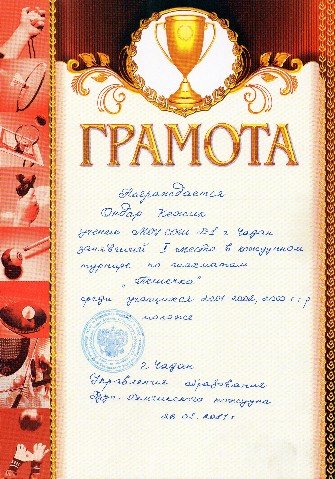 ГРАМОТА
Награждается
Ондар
ученик МОУ СОШ №1 г. Чадан
занявший I место в кожуунном
турнире по шахматам
"Пешечка"
среди учащихся 2001 2002, 2003 г.г.р
и моложе
г. Чадан
Управление образования
Дзун-Хемчикского кожууна